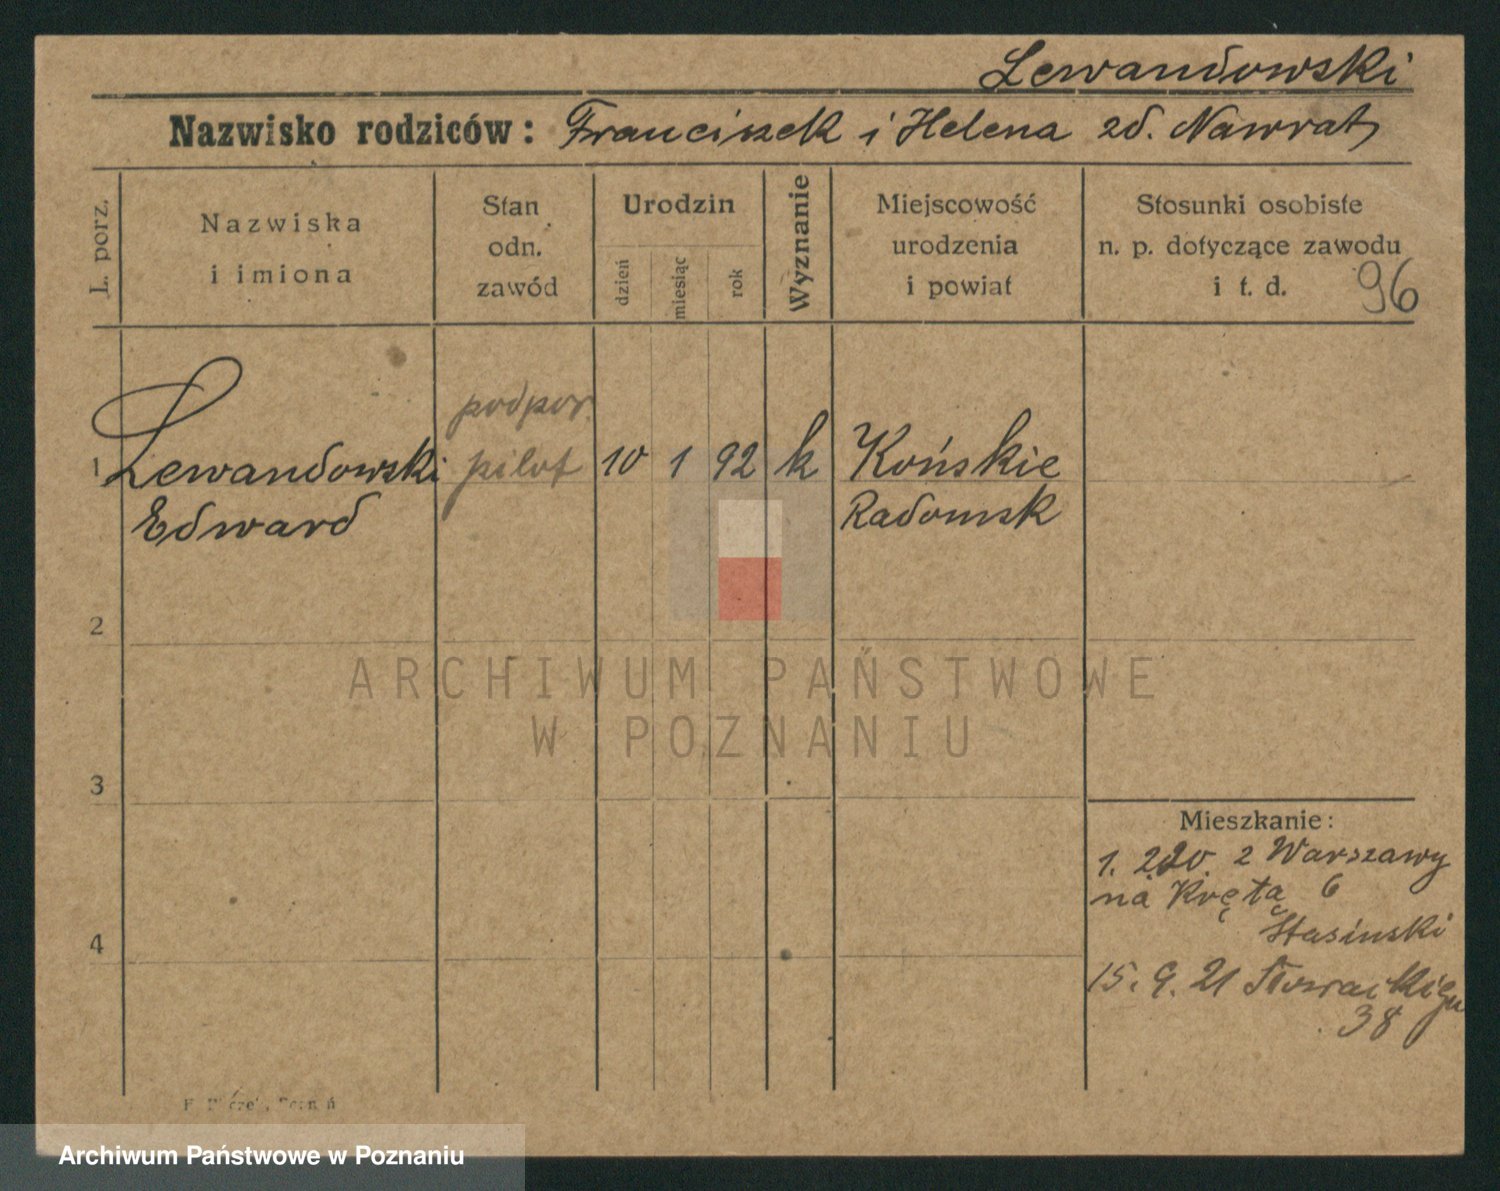 Lewandowski
Nazwisko rodziców: Franciszek i Helena zd. Nawrat
L. porz.
Nazwiska
i imiona
Stan
odn.
zawód
Urodzin
dzień
miesiąc
rok
Wyznanie
Miejscowość
urodzenia
i powiat
Stosunki osobiste
n. p. dotyczące zawodu
i t. d.
96
podpor.
1 Lewandowski pilot 10 1 92 k Końskie
Edward Radomsk
2
3
4
Mieszkanie:
1. 20. z Warszawy
na Kręta 6
Stasinski
15. 9. 21 Słowackiego
38
ARCHIWUM PAŃSTWOWE
W POZNANIU
Archiwum Państwowe w Poznaniu